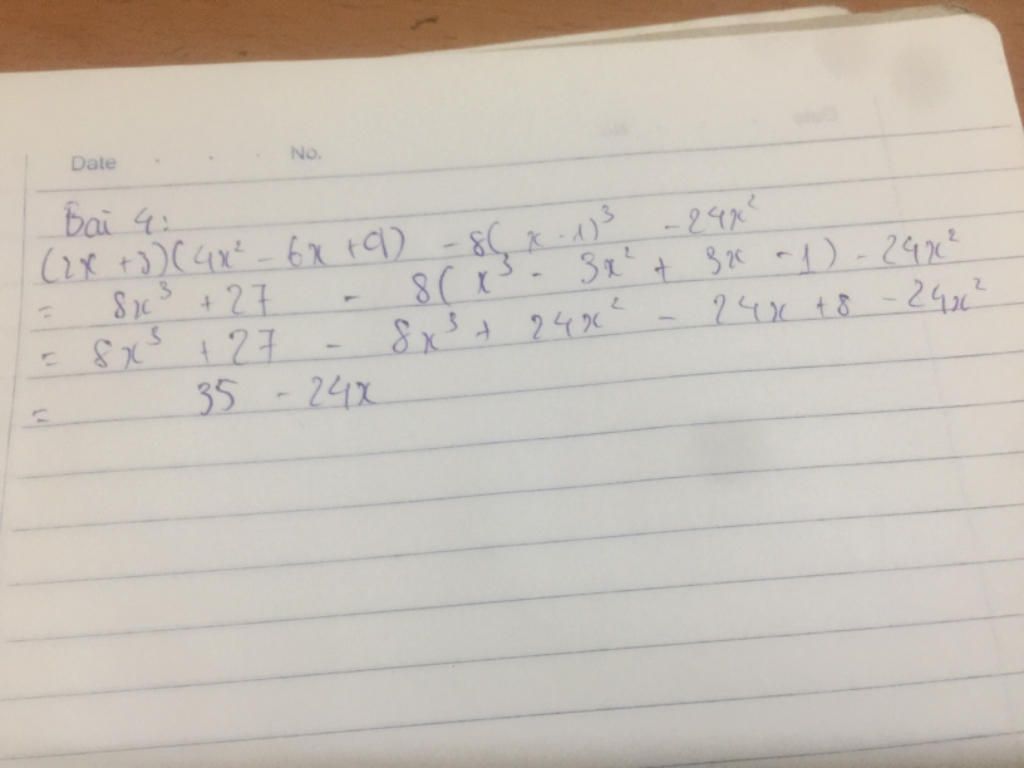 Date . . . No.
Bài 4:
(2x + 3)(4x² - 6x + 9) - 8(x - 1)³ - 24x²
= 8x³ + 27 - 8(x³ - 3x² + 3x - 1) - 24x²
= 8x³ + 27 - 8x³ + 24x² - 24x + 8 - 24x²
= 35 - 24x